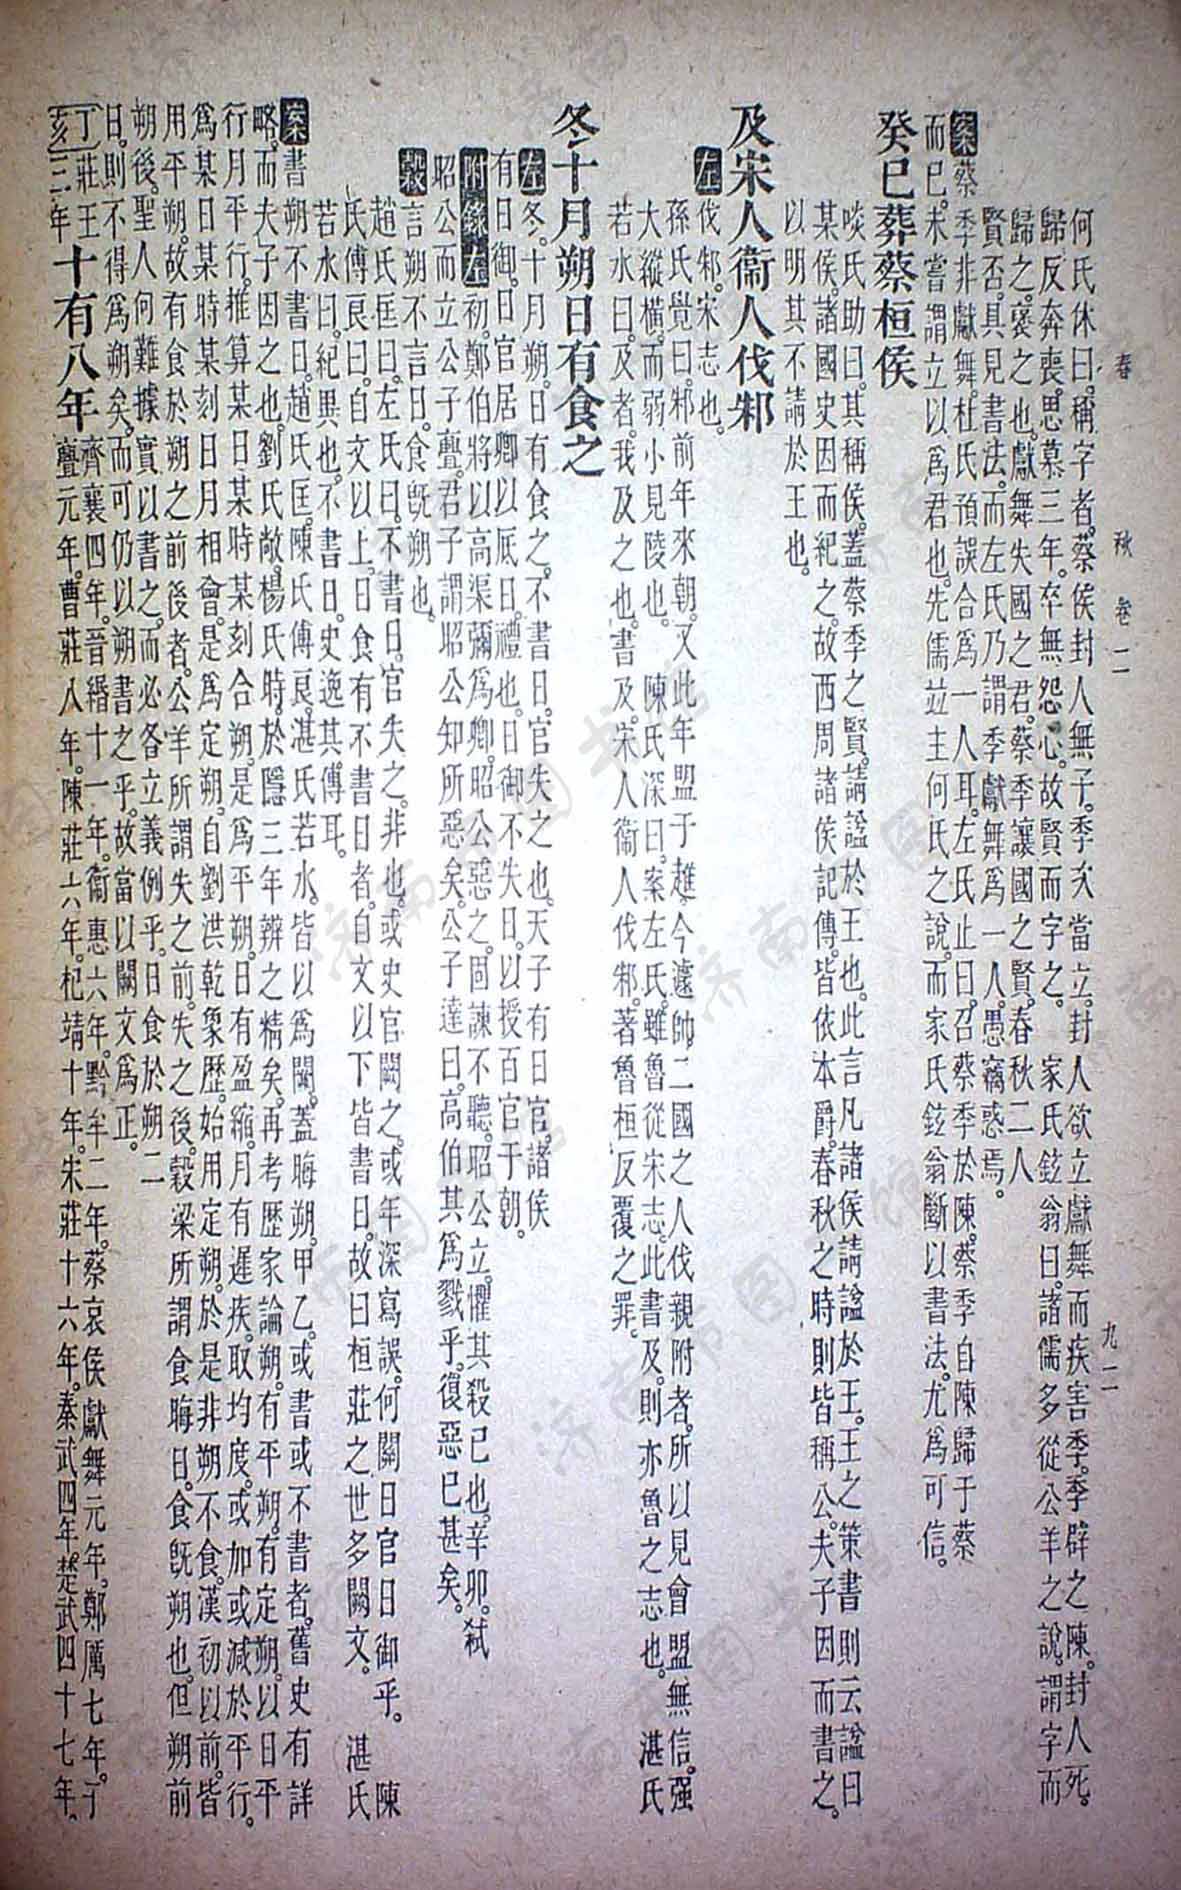 春秋　卷二　九二
何氏休曰。稱字者。蔡侯封人無子。季次當立。封人欲立獻舞而疾害季。季辟之陳。封人死。
歸反奔喪。思慕三年。卒無怨心。故賢而字之。　家氏鉉翁曰。諸儒多從公羊之說。謂字而
歸之。褒之也。獻舞失國之君。蔡季讓國之賢。春秋二人
賢否。具見書法。而左氏乃謂季獻舞爲一人。愚竊惑焉。
案蔡季非獻舞。杜氏預誤合爲一人耳。左氏止曰。召蔡季於陳。蔡季自陳歸于蔡
而已。未嘗謂立以爲君也。先儒並主何氏之說。而家氏鉉翁斷以書法。尤爲可信。
癸巳葬蔡桓侯
啖氏助曰。其稱侯。蓋蔡季之賢。請謚於王也。此言凡諸侯請謚於王。王之策書則云謚曰
某侯。諸國史因而紀之。故西周諸侯記傳。皆依本爵。春秋之時則皆稱公。夫子因而書之。
以明其不請於王也。
及宋人衞人伐邾
左伐邾。宋志也。
孫氏覺曰。邾前年來朝。又此年盟于趡。今遽帥二國之人伐親附者。所以見會盟無信。强
大縱橫。而弱小見陵也。　陳氏深曰。案左氏。雖魯從宋志。此書及。則亦魯之志也。　湛氏
若水曰。及者。我及之也。書及。宋人衞人伐邾。著魯桓反覆之罪。
冬十月朔日有食之
左冬。十月朔。日有食之。不書日。官失之也。天子有日官。諸侯
有日御。日官居卿以厎日。禮也。日御不失日。以授百官于朝。
附錄左初。鄭伯將以高渠彌爲卿。昭公惡之。固諫不聽。昭公立。懼其殺己也。辛卯。弑
昭公而立公子亹。君子謂昭公知所惡矣。公子達曰。高伯其爲戮乎。復惡已甚矣。
穀言朔不言日。食旣朔也。
趙氏匡曰。左氏曰。不書日。官失之。非也。或史官闕之。或年深寫誤。何關日官日御乎。　陳
氏傅良曰。自文以上。日食有不書日者。自文以下皆書日。故曰桓莊之世多闕文。　湛氏
若水曰。紀異也。不書日。史逸其傳耳。
案書朔不書日。趙氏匡。陳氏傅良。湛氏若水。皆以爲闕。蓋晦朔甲乙。或書或不書者。舊史有詳
略。而夫子因之也。劉氏敞。楊氏時。於隱三年辨之精矣。再考歷家論朔。有平朔。有定朔。以日平
行月平行。推算某日某時某刻合朔。是爲平朔。日有盈縮。月有遲疾。取均度。或加或減於平行。
爲某日某時某刻日月相會。是爲定朔。自劉洪乾象歷。始用定朔。於是非朔不食。漢初以前。皆
用平朔。故有食於朔之前後者。公羊所謂失之前。失之後。穀梁所謂食晦日。食旣朔也。但朔前
朔後。聖人何難據實以書之。而必各立義例乎。日食於朔二
日。則不得爲朔矣。而可仍以朔書之乎。故當以闕文爲正。
丁亥莊王三年十有八年齊襄四年。晉緡十一年。衞惠六年。黔牟二年。蔡哀侯獻舞元年。鄭厲七年。子
亹元年。曹莊八年。陳莊六年。杞靖十年。宋莊十六年。秦武四年。楚武四十七年。